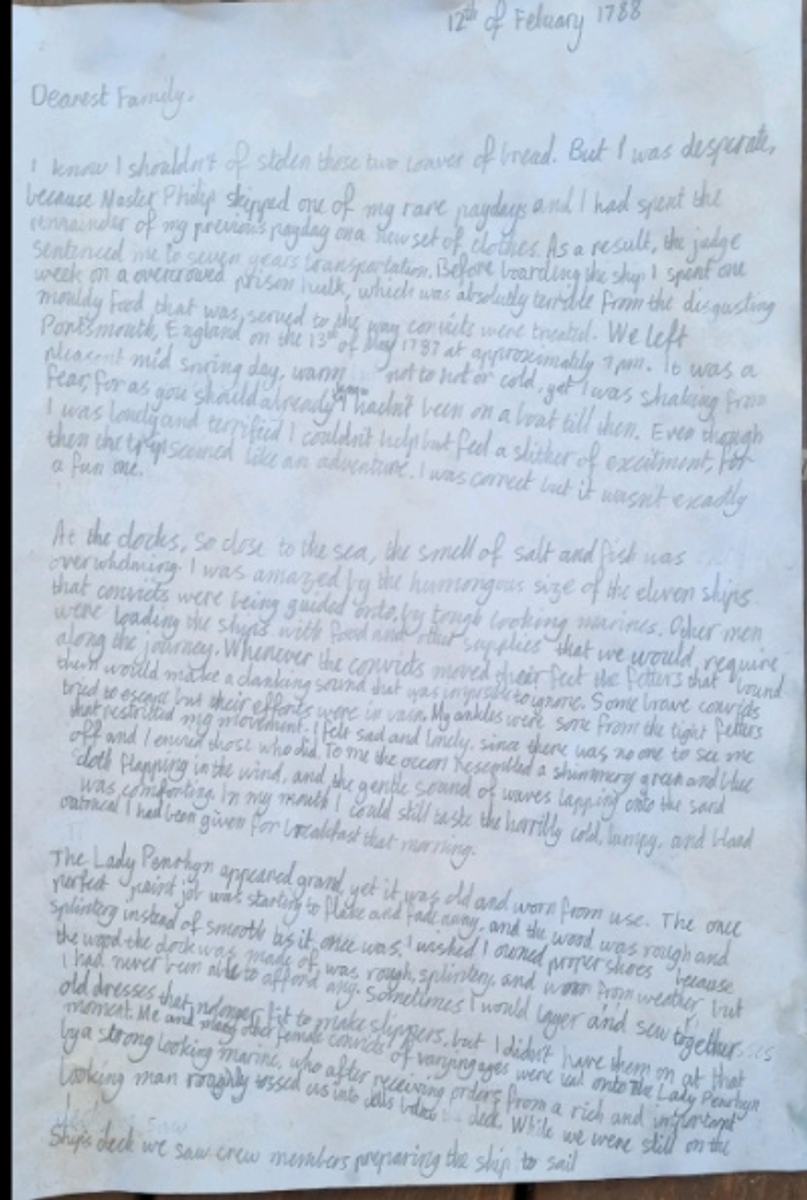 12th of Febuary 1788
Dearest Family,
I know I shouldn't of stolen those two loaves of bread. But I was desperate,
because Master Philip skipped one of my rare paydays and I had spent the
remainder of my previous payday on a new set of clothes. As a result, the judge
sentenced me to seven years transportation. Before boarding the ship I spent one
week on a overcrowed prison hulk, which was absolutely terrible from the disgusting
mouldy food that was, served to the way convicts were treated. We left
Portsmouth, England on the 13th of May 1787 at approximately 7 pm. It was a
pleasent mid spring day, warm not to hot or cold, yet I was shaking from
fear, for as you should already know I hadn't been on a boat till then. Even though
I was lonely and terrified I couldn't help but feel a slither of excitment, for
then the trip seemed like an adventure. I was correct but it wasn't exactly
a fun one.
At the docks, so close to the sea, the smell of salt and fish was
overwhelming. I was amazed by the humongous size of the eleven ships
that convicts were being guided onto, by tough looking marines. Other men
were loading the ships with food and other supplies that we would require
along the journey. Whenever the convicts moved their feet the fetters that bound
them would make a clanking sound that was impossible to ignore. Some brave convicts
tried to escape but their efforts were in vain. My ankles were sore from the tight fetters
that restricted my movement. I felt sad and lonely, since there was no one to see me
off and I envied those who did. To me the ocean resembled a shimmery green and blue
cloth flapping in the wind, and the gentle sound of waves lapping onto the sand
was comforting. In my mouth I could still taste the horribly cold, lumpy, and bland
oatmeal I had been given for breakfast that morning.
The Lady Penrhyn appeared grand, yet it was old and worn from use. The once
perfect paint job was starting to flake and fade away, and the wood was rough and
splintery instead of smooth as it once was. I wished I owned proper shoes because
the wood the dock was made of, was rough, splintery, and worn from weather but
I had never been able to afford any. Sometimes I would layer and sew together
old dresses that no longer fit to make slippers, but I didn't have them on at that
moment. Me and many other female convicts of varying ages were led onto the Lady Penrhyn
by a strong looking marine, who after receiving orders from a rich and important
looking man roughly tossed us into cells below deck. While we were still on the
Ships deck we saw crew members preparing the ship to sail